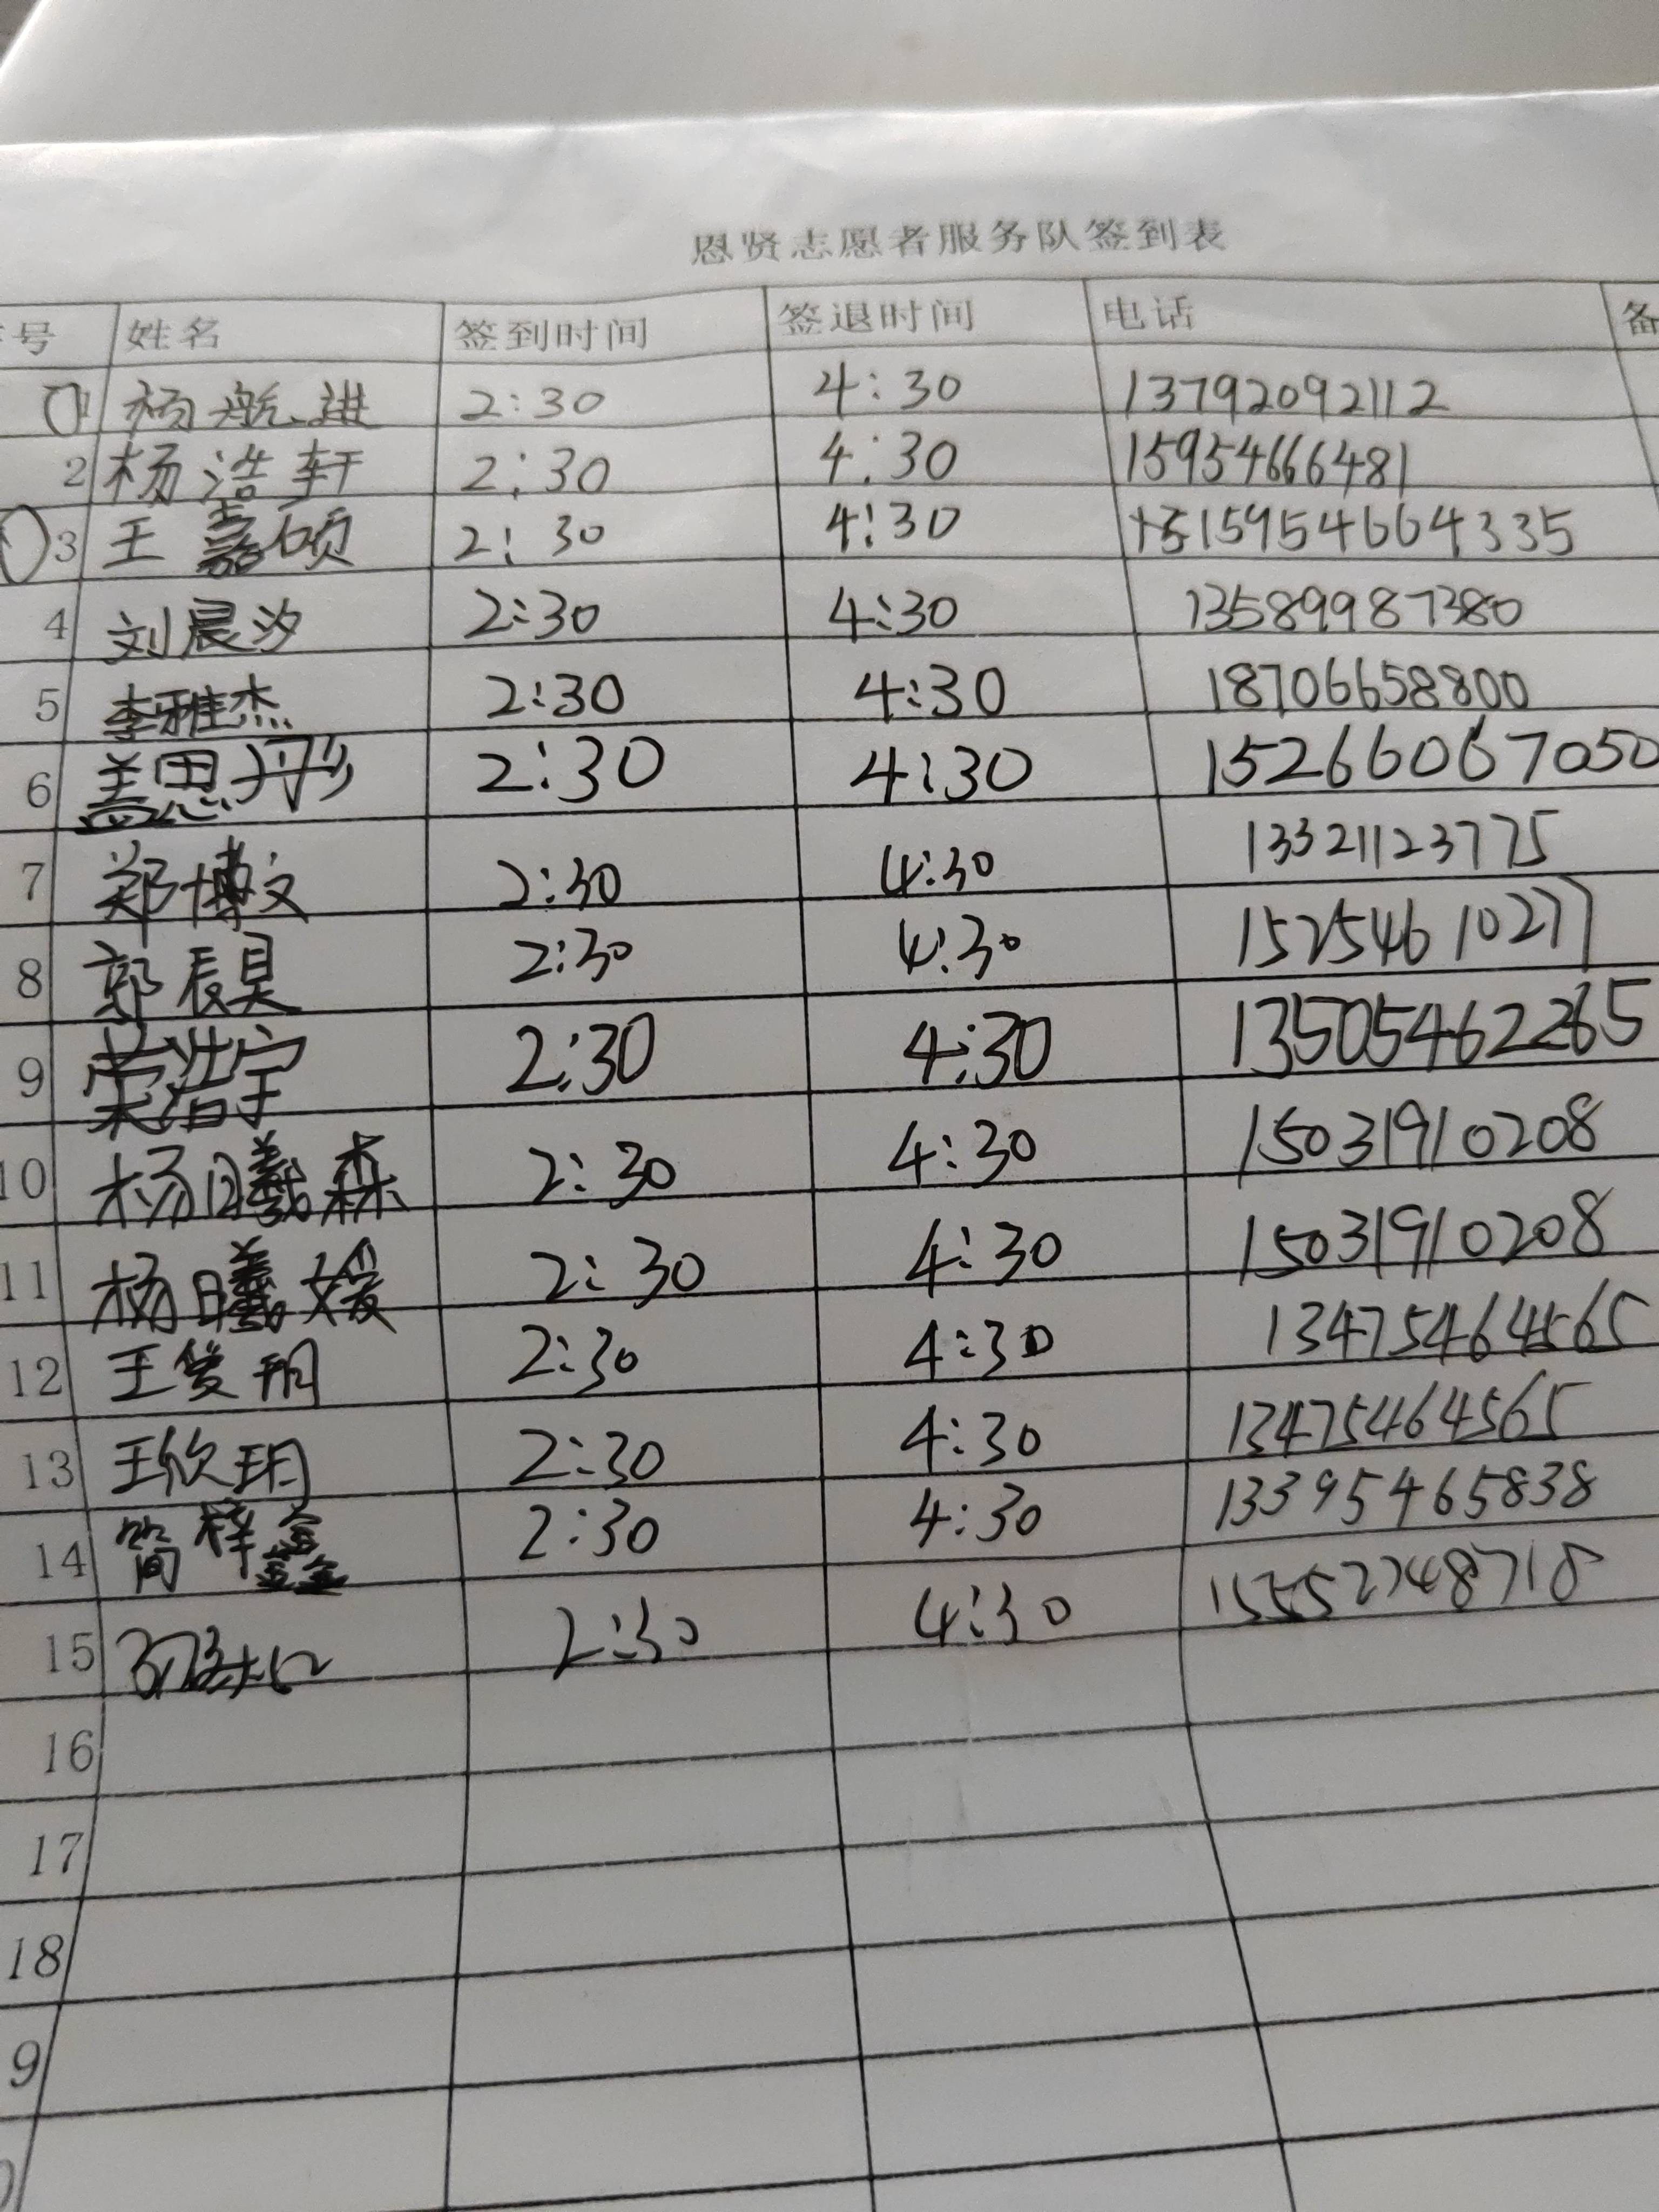 恩贤志愿者服务队签到表
号 姓名 签到时间 签退时间 电话 备
1 杨航进 2:30 4:30 13792092112
2 杨浩轩 2:30 4:30 15954666481
3 王嘉硕 2:30 4:30 159546664335
4 刘晨汐 2:30 4:30 13589987380
5 李雅杰 2:30 4:30 18706658800
6 盖思彤 2:30 4:30 15266067050
7 郑博文 2:30 4:30 13321123775
8 郭辰昊 2:30 4:30 15254610277
9 荣浩宇 2:30 4:30 13505462265
10 杨曦森 2:30 4:30 15031910208
11 杨曦媛 2:30 4:30 15031910208
12 王 2:30 4:30 13475464565
13 王欣玥 2:30 4:30 13475464565
14 简梓鑫 2:30 4:30 13395465838
15 2:30 4:30 15552748718
16
17
18
9